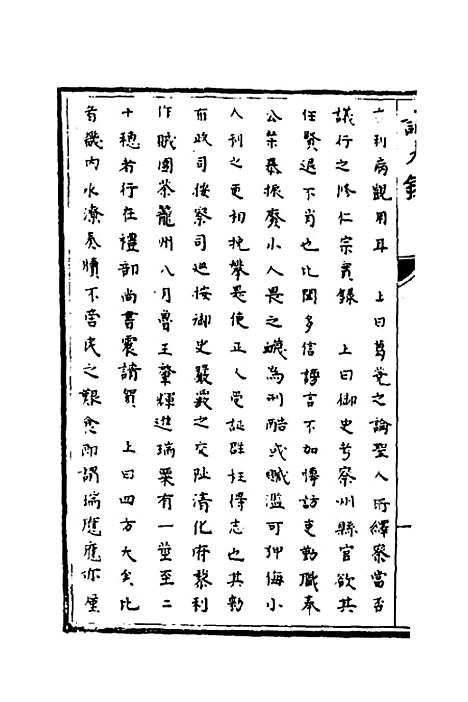 利病觀用耳　上曰蒭蕘之論聖人所繹察當否
議行之修仁宗實錄　上曰御史考察州縣官欲其
任賢退不肖也比聞多信謗言不加博訪吏勤職奉
公禁暴振廢小人畏之衊為刑酷或贓濫可狎侮小
人利之更相挽攀是使正人受誣群枉得志也其勅
布政司按察司巡按御史嚴覈之交阯清化府黎利
作賊圍茶籠州八月魯王肇煇進瑞粟有一莖至二
十穗者行在禮部尚書震請賀　上曰四方大矣比
者畿內水潦奏牘不啻民之艱愈即謂瑞應應亦僅